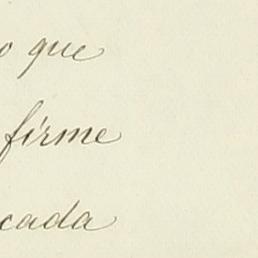 o que
firme
cada